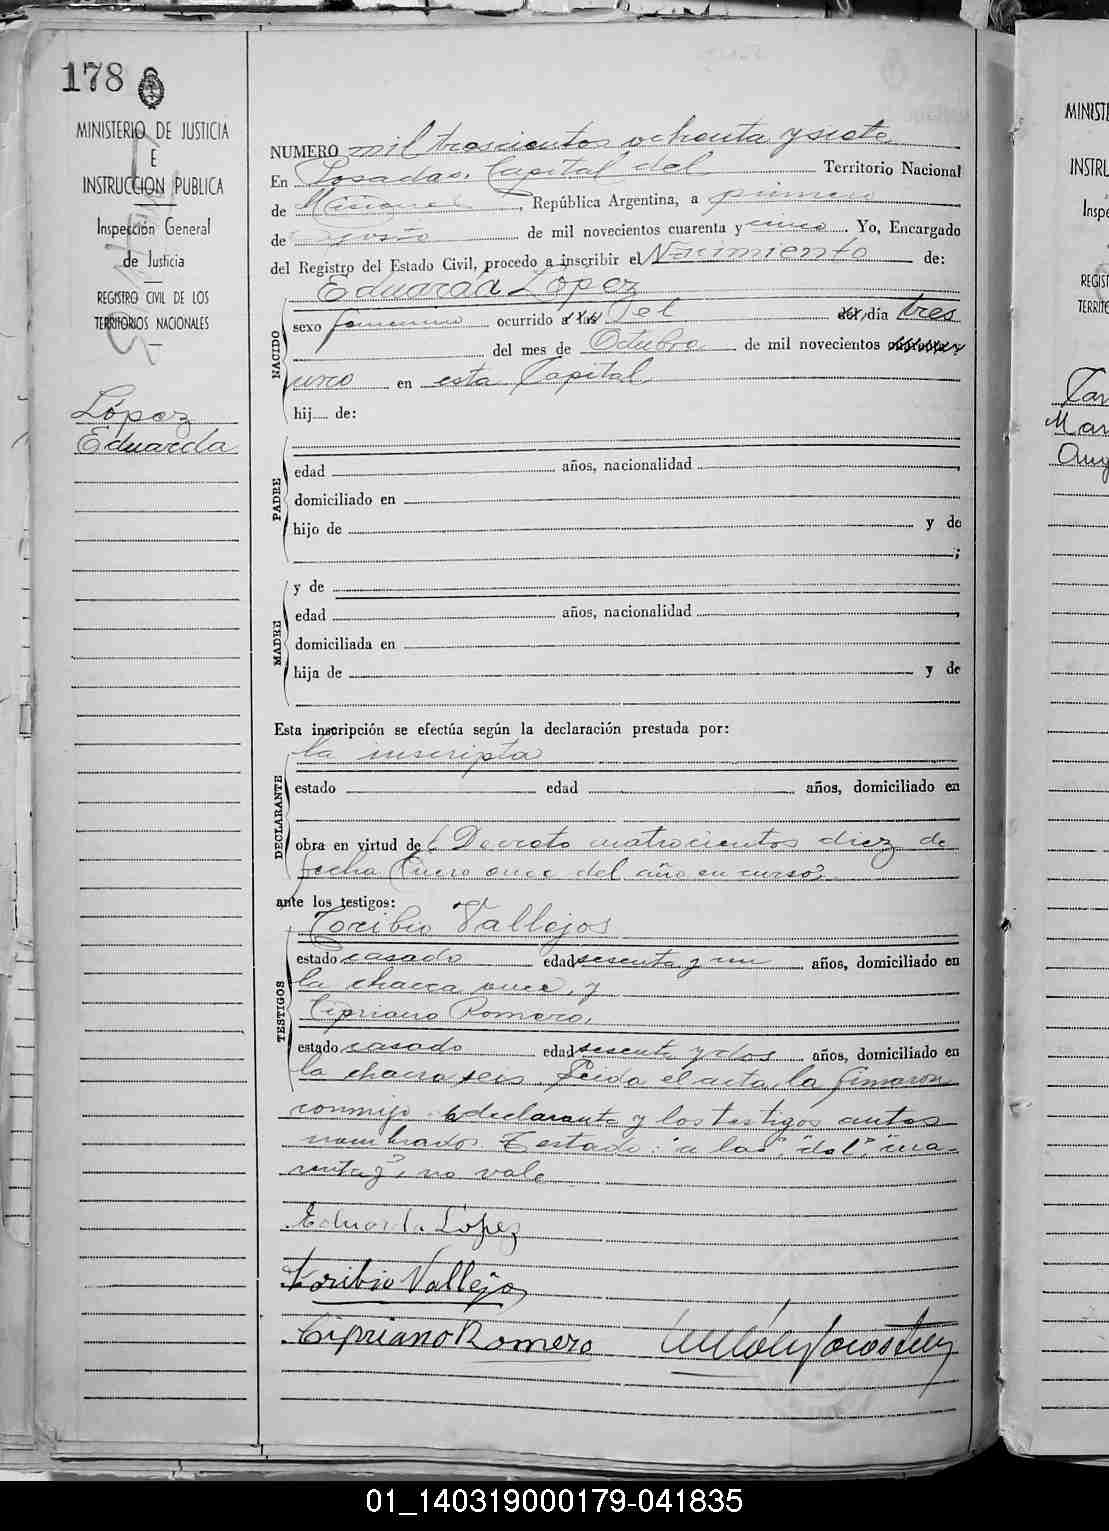 178
MINISTERIO DE JUSTICIA
E
INSTRUCCION PUBLICA
Inspección General
de Justicia
REGISTRO CIVIL DE LOS
TERRITORIOS NACIONALES
López
Eduarda
NUMERO mil trescientos ochenta y siete
En Posadas, Capital del Territorio Nacional
de Misiones, República Argentina, a primero
de Agosto de mil novecientos cuarenta y cinco. Yo, Encargado
del Registro del Estado Civil, procedo a inscribir el Nacimiento de:
Eduarda López
NACIDO
sexo femenino ocurrido a las del del día tres
del mes de Octubre de mil novecientos
uno en esta Capital
hij de:
PADRE
edad años, nacionalidad ,
domiciliado en
hijo de y de
;
MADRE
y de
edad años, nacionalidad ,
domiciliada en
hija de y de
Esta inscripción se efectúa según la declaración prestada por:
DECLARANTE
la inscripta
estado edad años, domiciliado en
obra en virtud del Decreto cuatrocientos diez de
fecha Enero once del año en curso
ante los testigos:
TESTIGOS
Toribio Vallejos
estado casado edad sesenta y un años, domiciliado en
la chacra once, y
Cipriano Romero,
estado casado edad sesenta y dos años, domiciliado en
la chacra seis. Leida el acta, la firmaron
conmigo la declarante y los testigos antes
nombrados. Testado: "a las", "del", "cua
renta y", no vale
Eduarda López
Toribio Vallejo
Cipriano Romero
MINIST
INSTRU
Inspe
REGIST
TERRITO
Mar
Ang
01_140319000179-041835